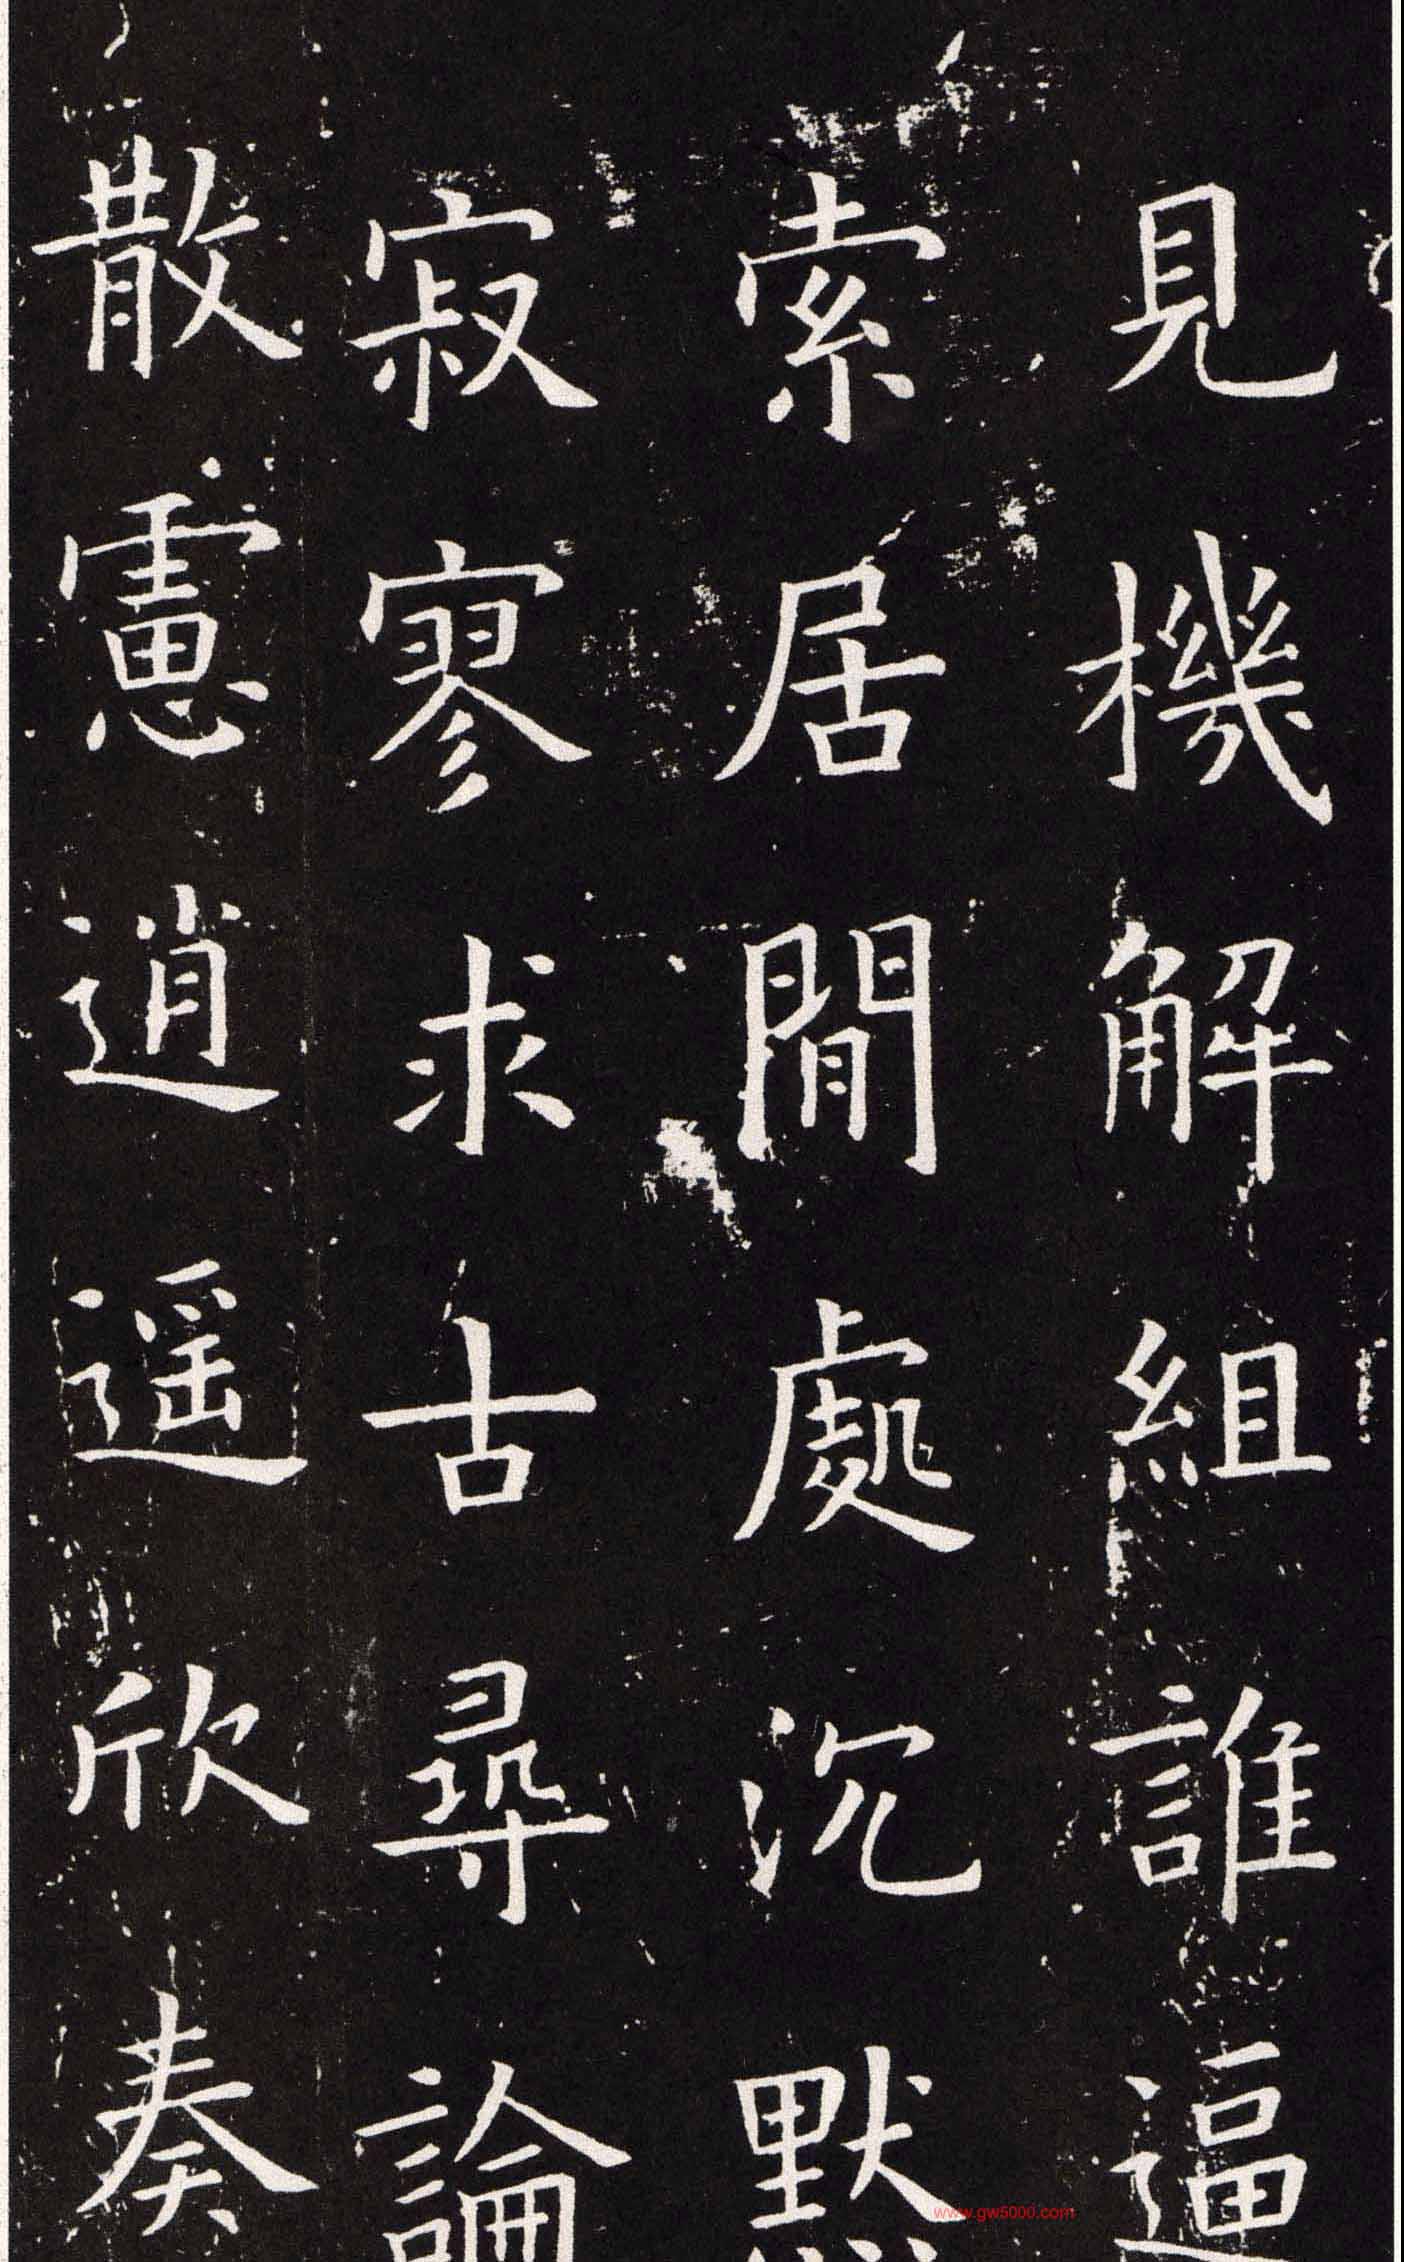 見機解組誰逼
索居閒處沉默
寂寥求古尋論
散慮逍遥欣奏
www.gw5000.com